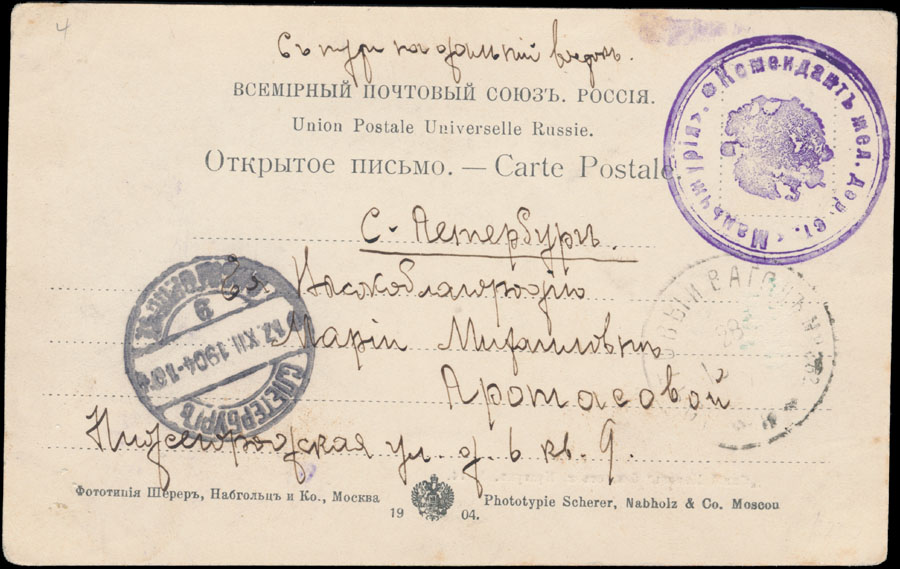 4
Съ пути на дальній востокъ.
ВСЕМІРНЫЙ ПОЧТОВЫЙ СОЮЗЪ. РОССІЯ.
Union Postale Universelle Russie.
Открытое письмо. — Carte Postale
Комендантъ жел. дор. ст. «Маньчжурія».
С-Петербургъ.
Ея Высокоблагородію
Маріи Михайловнѣ
Протасовой
Нижегородская ул. д. 6 кв. 9.
С.ПЕТЕРБУРГЪ
17 XII 1904
9
ВЫЙ ВАГОНЪ
Фототипія Шереръ, Набгольцъ и Ко., Москва
1904.
Phototypie Scherer, Nabholz & Co. Moscou